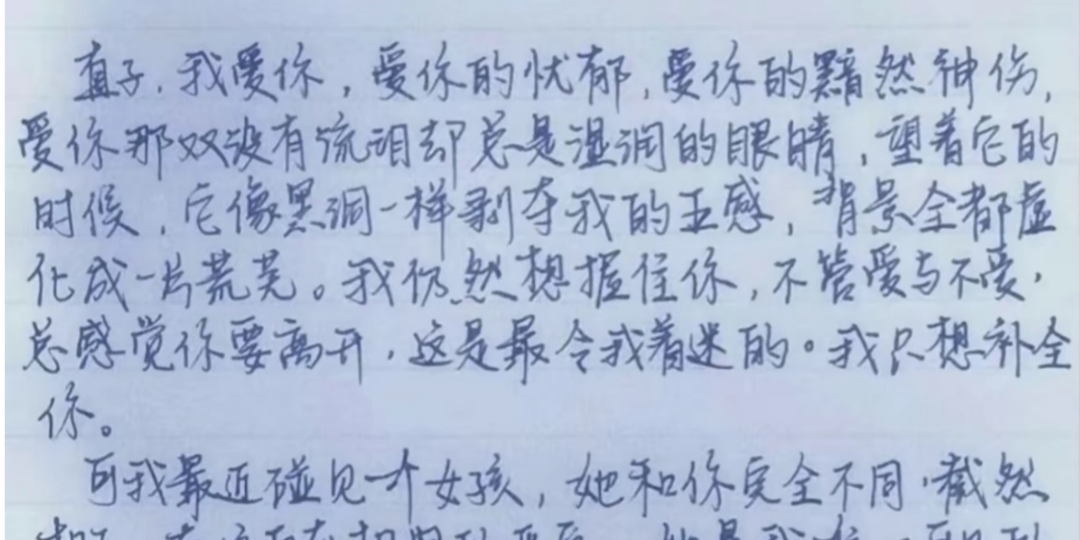 直子,我爱你,爱你的忧郁,爱你的黯然神伤,
爱你那双没有流泪却总是湿润的眼睛,望着它的
时候,它像黑洞一样剥夺我的五感,背景全都虚
化成一片荒芜。我仍然想握住你,不管爱与不爱,
总感觉你要离开,这是最令我着迷的。我只想补全
你。
可我最近碰见一个女孩,她和你完全不同,截然